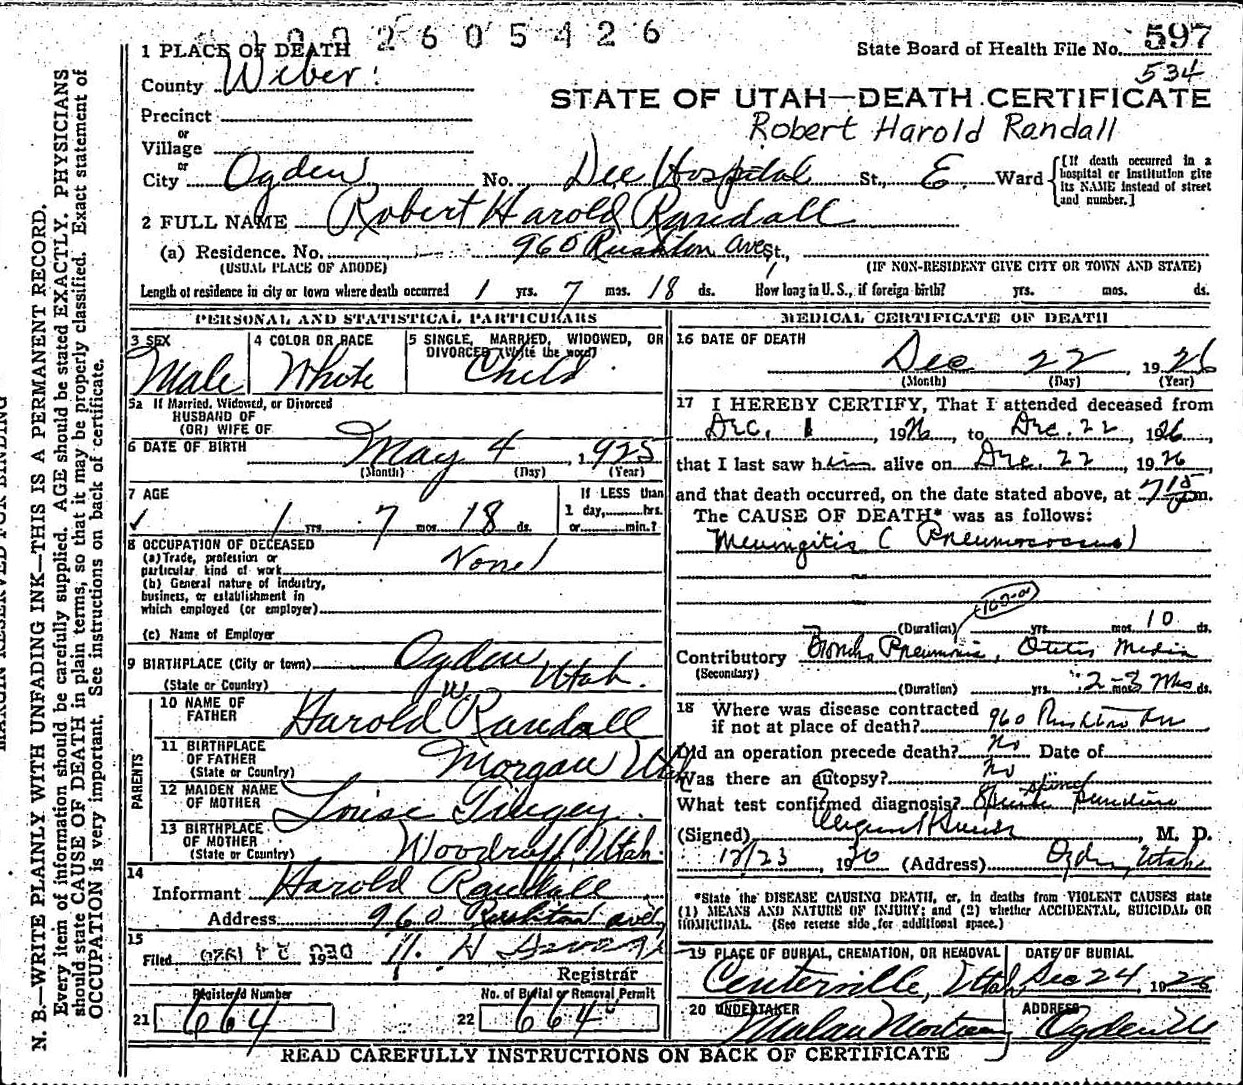 1 9 0 2 6 0 5 4 2 6
1 PLACE OF DEATH
State Board of Health File No. 597
534
County Weber
STATE OF UTAH—DEATH CERTIFICATE
Precinct
Robert Harold Randall
or
Village
or
City Ogden No. Dee Hospital St., E. Ward
[If death occurred in a hospital or institution give its NAME instead of street and number.]
2 FULL NAME Robert Harold Randall
(a) Residence. No. 960 Rushton Ave St.,
(USUAL PLACE OF ABODE) (IF NON-RESIDENT GIVE CITY OR TOWN AND STATE)
Length of residence in city or town where death occurred 1 yrs. 7 mos. 18 ds. How long in U. S., if foreign birth? yrs. mos. ds.
PERSONAL AND STATISTICAL PARTICULARS
3 SEX
Male
4 COLOR OR RACE
White
5 SINGLE, MARRIED, WIDOWED, OR
DIVORCED (Write the word)
Child
5a If Married, Widowed, or Divorced
HUSBAND OF
(OR) WIFE OF
6 DATE OF BIRTH May 4, 1925
(Month) (Day) (Year)
7 AGE
If LESS than
1 day, hrs.
or min.?
1 yrs. 7 mos. 18 ds.
8 OCCUPATION OF DECEASED
(a) Trade, profession or
particular kind of work None
(b) General nature of industry,
business, or establishment in
which employed (or employer)
(c) Name of Employer
9 BIRTHPLACE (City or town) Ogden
(State or Country) Utah.
PARENTS
10 NAME OF
FATHER Harold W. Randall
11 BIRTHPLACE
OF FATHER Morgan Utah
(State or Country)
12 MAIDEN NAME
OF MOTHER Louise Tingey.
13 BIRTHPLACE
OF MOTHER Woodruff, Utah.
(State or Country)
14
Informant Harold Randall
Address 960 Rushton ave
15
Filed DEC 24 1926
Registrar
Registered Number
21 664
No. of Burial or Removal Permit
22 664
MEDICAL CERTIFICATE OF DEATH
16 DATE OF DEATH
Dec 22, 1926
(Month) (Day) (Year)
17 I HEREBY CERTIFY, That I attended deceased from
Dec. 1, 1926, to Dec. 22, 1926,
that I last saw him alive on Dec. 22, 1926,
and that death occurred, on the date stated above, at 7 15 p m.
The CAUSE OF DEATH* was as follows:
Meningitis (Pneumococcus)
(Duration) yrs. mos. 10 ds.
Contributory Broncho Pneumonia, Otitis Media
(Secondary)
(Duration) yrs. 2-3 mos. ds.
18 Where was disease contracted
if not at place of death? 960 Rushton Av
Did an operation precede death? No Date of
Was there an autopsy? No
What test confirmed diagnosis?
(Signed) , M. D.
12/23 1926 (Address) Ogden, Utah
*State the DISEASE CAUSING DEATH, or, in deaths from VIOLENT CAUSES state
(1) MEANS AND NATURE OF INJURY; and (2) whether ACCIDENTAL, SUICIDAL OR
HOMICIDAL. (See reverse side for additional space.)
19 PLACE OF BURIAL, CREMATION, OR REMOVAL
Centerville, Utah
DATE OF BURIAL
Dec 24, 1926
20 UNDERTAKER
ADDRESS
READ CAREFULLY INSTRUCTIONS ON BACK OF CERTIFICATE
MARGIN RESERVED FOR BINDING
N. B.—WRITE PLAINLY WITH UNFADING INK—THIS IS A PERMANENT RECORD.
Every item of information should be carefully supplied. AGE should be stated EXACTLY. PHYSICIANS
should state CAUSE OF DEATH in plain terms, so that it may be properly classified. Exact statement of
OCCUPATION is very important. See instructions on back of certificate.